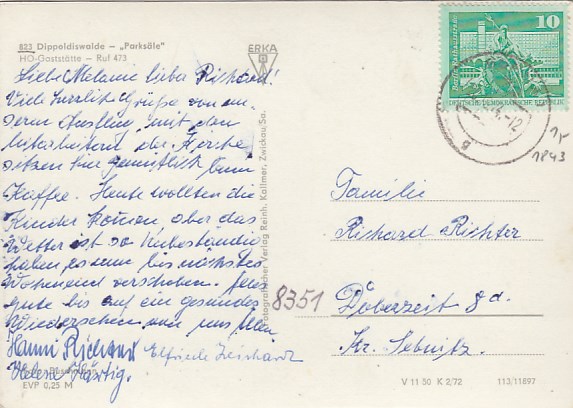 823 Dippoldiswalde – „Parksäle"
HO-Gaststätte – Ruf 473
ERKA
Liebe Melanie lieber Richard!
Viele herzliche Grüße von un-
serm Ausflug mit den
Mitarbeitern der Kirche
sitzen hier gemütlich beim
Kaffee. Heute wollten die
Kinder kommen aber das
Wetter ist so unbeständig
haben es nun bis nächstes
Wochenend verschoben. Alles
gute bis auf ein gesundes
Wiedersehen von uns allen
Hanni Richard Elfriede
Helene Härtig.
EVP 0,25 M
Fotografischer Verlag Reinh. Kallmer, Zwickau/Sa.
10
DEUTSCHE DEMOKRATISCHE REPUBLIK
1843
Familie
Richard Richter
8351 Doberzeit 8d.
Kr. Sebnitz.
V 11 50 K 2/72 113/11897